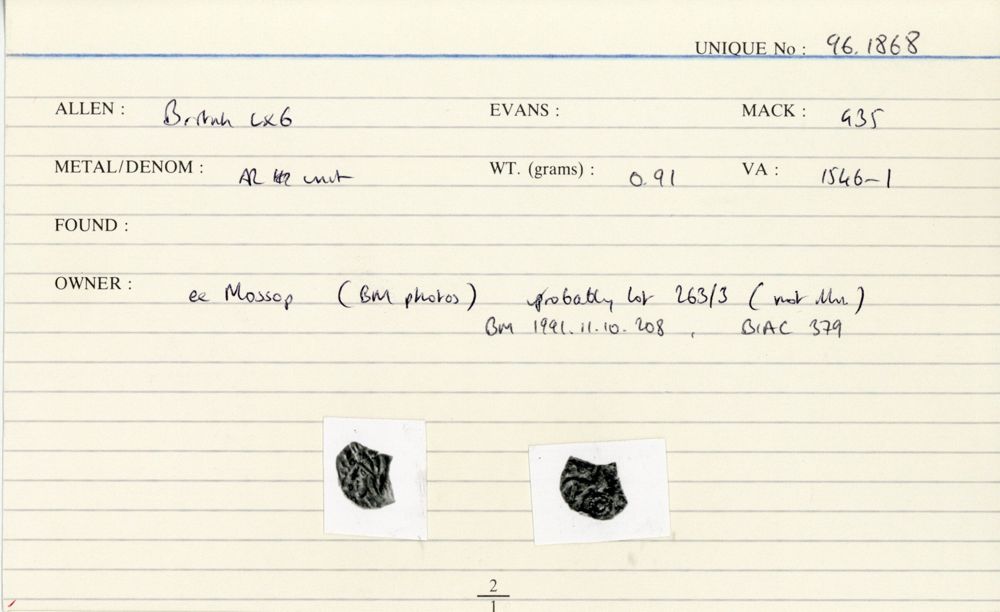 UNIQUE No : 96.1868
ALLEN : British LX6 EVANS : MACK : 435
METAL/DENOM : AR unit WT. (grams) : 0.91 VA : 1546-1
FOUND :
OWNER :
ex Mossop (BM photos) probably lot 263/3 (not illn.)
BM 1991.11.10.208 , BIAC 379
2
1